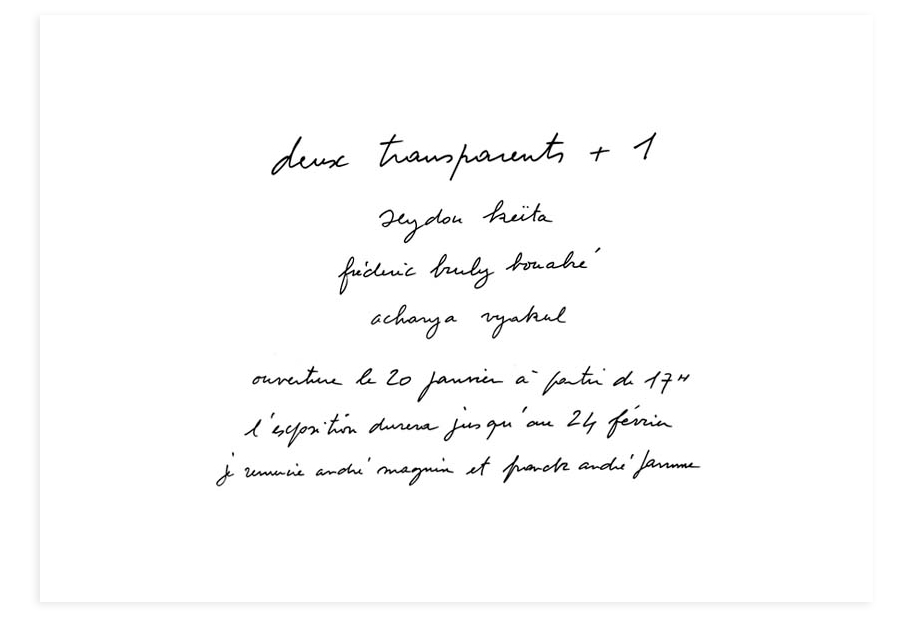 deux transparents + 1
seydou keïta
frédéric bruly bouabré
acharya vyakul
ouverture le 20 janvier à partir de 17H
l'exposition durera jusqu'au 24 février
je remercie andré magnin et franck andré Jamme